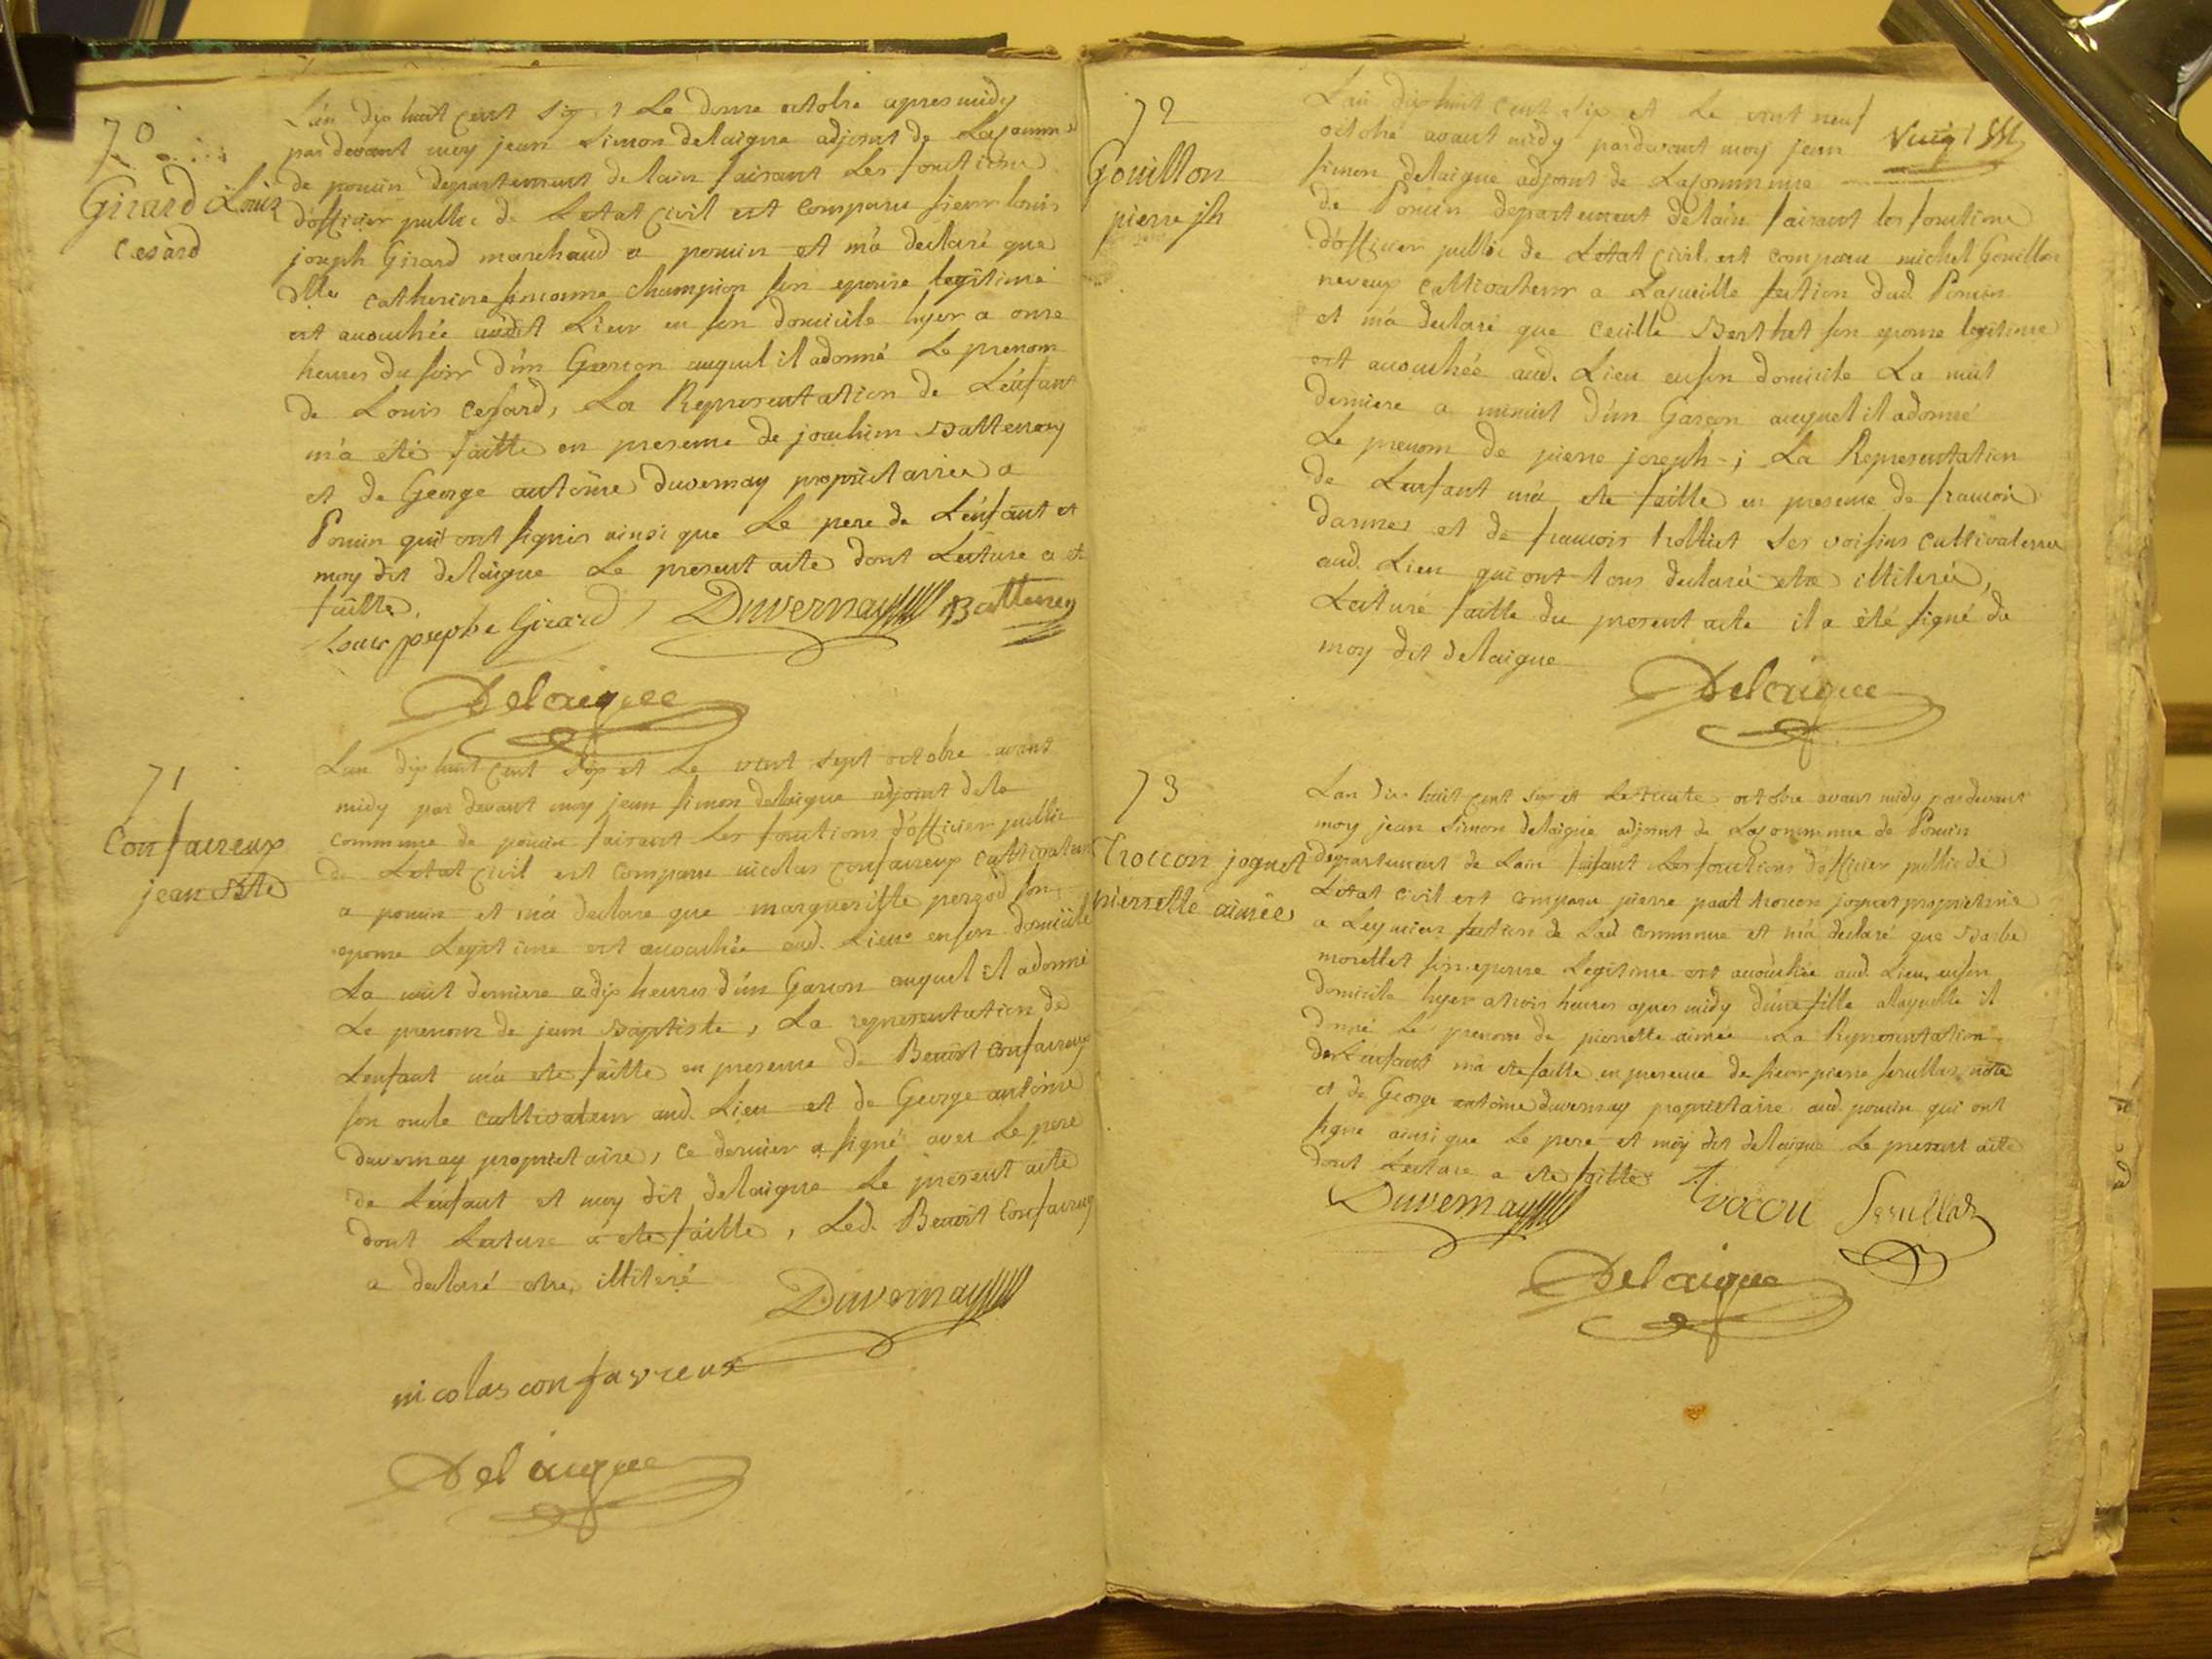 70
Girard Louis
Cesard
L'an dix huit cent six et le douze octobre apres midy
par devant moy jean Simon delaigue adjoint de Lacommune
de poncin departement delain faisant Les fonctions
d'officier public de Letat Civil est comparu sieur louis
joseph Girard marchaud a poncin et m'a declaré que
dlle catherine francoise Champion son epouse legitime
est accouchée audit Lieu en son domicile hyer a onze
heures du soir d'un Garcon auquel il adonné Le prenom
de Louis Cesard, La Representation de L'enfant
m'a été faitte en presence de joachim Battenay
et de George antoine duvernay proprietaires a
Poncin qui ont signés ainsi que Le pere de L'enfant et
moy dit delaigue Le present acte dont Lecture a eté
faitte.
Louis josephe Girard Duvernay Battenay
Delaigue
71
Confavreux
jean Bte
Lan dix huit cent Six et Le vint sept octobre avant
midy par devant moy jean Simon delaigue adjoint dela
commune de poncin faisant Les fonctions d'officier public
de Letat Civil est comparu nicolas Confavreux Cultivateur
a poncin et m'a declare que margueritte son
epouse Legitime est accouchée aud. Lieu en son domicille
La nuit derniere adix heures d'un Garcon auquel il adonné
Le prenom de jean Baptiste, La representation de
Lenfant m'a ete faitte en presence de Benoit Confavreux
son oncle cultivateur aud. Lieu et de George antoine
duvernay proprietaire, ce dernier a signé avec Le pere
de Lenfant et moy dit delaigue Le present acte
dont Lecture a ete faitte, Led. Benoit Confavreux
a declaré etre illiteré
Duvernay
nicolas confavreux
Delaigue
72
Gouillon
pierre jh
Lan dix huit cent six et Le vint neuf
octobre avant midy pardevant moy jean
Simon delaigue adjoint de Lacommune
de Poncin departement delain faisant les fonctions
d'officier public de Letat Civil est comparu michel Gouillon
neveux cultivateur a Lacueille section dud. Poncin
et m'a declaré que Cecille Berthet son epouse legitime
est accouchée aud. Lieu enson domicile La nuit
derniere a minuit d'un Garçon auquel il adonné
Le prenom de pierre joseph; La Representation
de Lenfant m'a ete faitte en presence de francois
et de francois ses voisins cultivateurs
aud. Lieu qui ont tous declaré etre illiterés,
Lecture faitte du present acte il a été signé de
moy dit delaigue
Delaigue
73
Troccon joguet
pierrette aimée
Lan dix huit cent six et Le trente octobre avant midy pardevant
moy jean Simon delaigue adjoint de Lacommune de Poncin
departement de Lain faisant Les fonctions d'officier public de
Letat civil est comparu pierre paul trocon joguet proprietaire
a Leymiat section de Lad commune et m'a declaré que Barbe
morellet son epouse Legitime est accouchée aud. Lieu enson
domicile hyer atrois heures apres midy d'une fille alaquelle il
donné Le prenom de pierrette aimée La Representation
de L'enfant m'a ete faitte en presence de sieur pierre serullas notre
et de George antoine duvernay proprietaire aud. poncin qui ont
signe ainsi que Le pere et moy dit delaigue Le present acte
dont Lecture a ete faitte
Duvernay Trocon Serullas
Delaigue